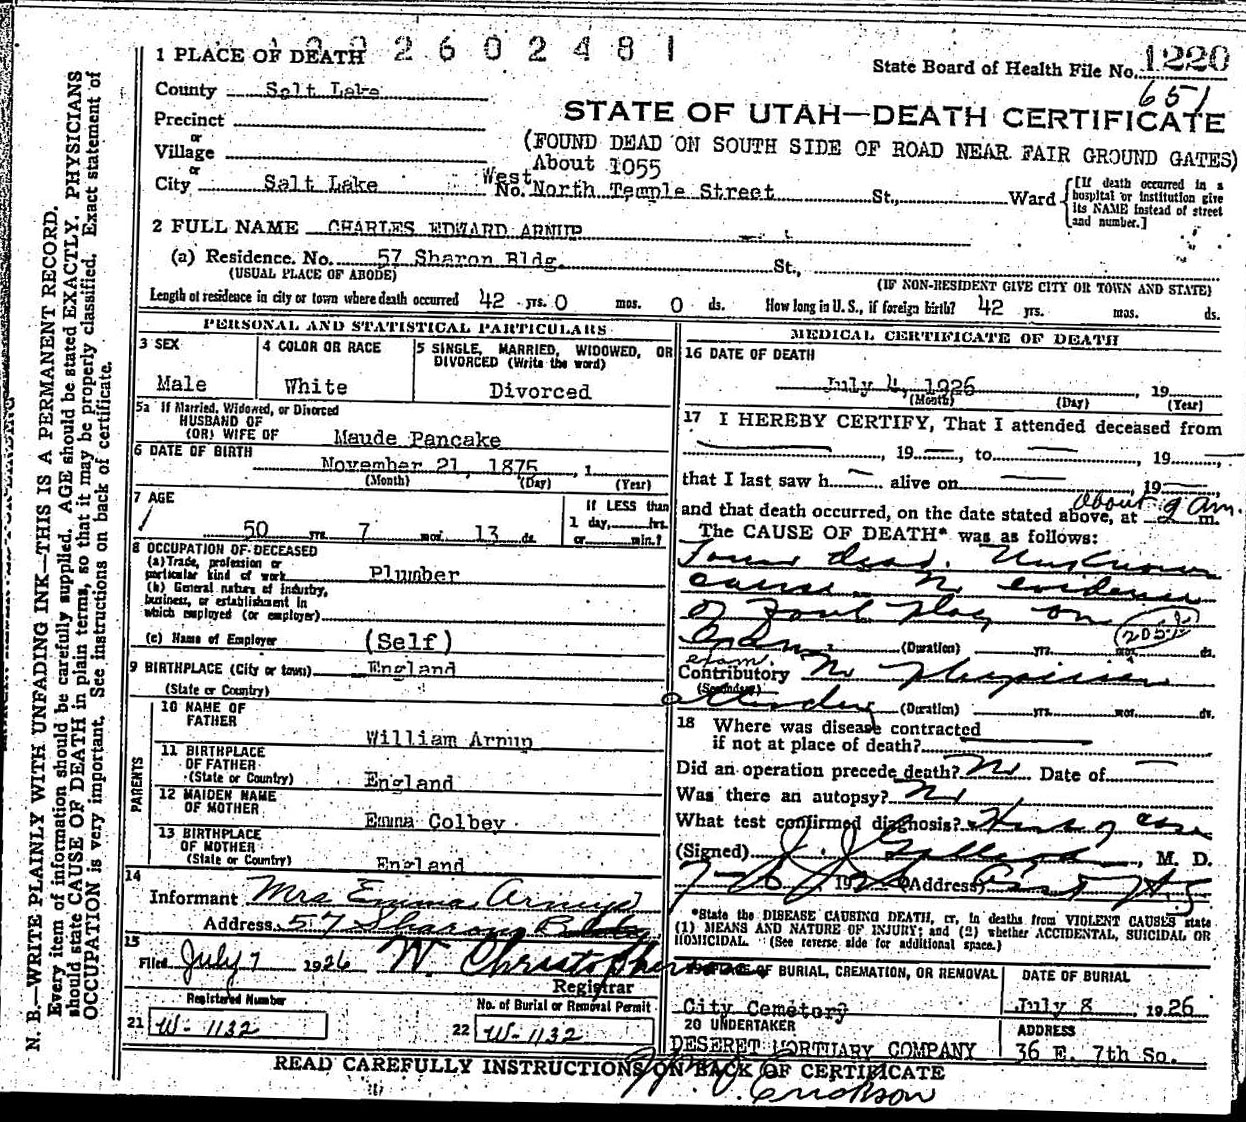 2602481
1 PLACE OF DEATH
State Board of Health File No. 1220
651
County Salt Lake
STATE OF UTAH—DEATH CERTIFICATE
Precinct
or
(FOUND DEAD ON SOUTH SIDE OF ROAD NEAR FAIR GROUND GATES)
Village
or
About 1055
City Salt Lake West No. North Temple Street St., Ward
[If death occurred in a hospital or institution give its NAME instead of street and number.]
2 FULL NAME CHARLES EDWARD ARNUP
(a) Residence. No. 57 Sharon Bldg. St.,
(USUAL PLACE OF ABODE) (IF NON-RESIDENT GIVE CITY OR TOWN AND STATE)
Length of residence in city or town where death occurred 42 yrs. 0 mos. 0 ds. How long in U.S., if foreign birth? 42 yrs. mos. ds.
PERSONAL AND STATISTICAL PARTICULARS
3 SEX
Male
4 COLOR OR RACE
White
5 SINGLE, MARRIED, WIDOWED, OR DIVORCED (Write the word)
Divorced
5a If Married, Widowed, or Divorced
HUSBAND OF
(OR) WIFE OF Maude Pancake
6 DATE OF BIRTH
November 21, 1875, 1
(Month) (Day) (Year)
7 AGE
50 yrs. 7 mos. 13 ds.
If LESS than
1 day, hrs.
or min.?
8 OCCUPATION OF DECEASED
(a) Trade, profession or
particular kind of work Plumber
(b) General nature of industry,
business, or establishment in
which employed (or employer)
(c) Name of Employer (Self)
9 BIRTHPLACE (City or town) England
(State or Country)
PARENTS
10 NAME OF
FATHER
William Arnup
11 BIRTHPLACE
OF FATHER
(State or Country) England
12 MAIDEN NAME
OF MOTHER
Emma Colbey
13 BIRTHPLACE
OF MOTHER
(State or Country) England
14
Informant Mrs Emma Arnup
Address 57 Sharon Bldg
15
Filed July 7 1926 W. Christopherson
Registrar
Registered Number
21 W-1132
No. of Burial or Removal Permit
22 W-1132
MEDICAL CERTIFICATE OF DEATH
16 DATE OF DEATH
July 4, 1926, 19
(Month) (Day) (Year)
17 I HEREBY CERTIFY, That I attended deceased from
, 19 , to , 19
that I last saw h alive on , 19
and that death occurred, on the date stated above, at about 9 am. m.
The CAUSE OF DEATH* was as follows:
Found dead. Unknown
cause. No evidence
of Foul play on
(Duration) yrs. mos. ds.
205
exam.
Contributory No physician
(Secondary)
attending (Duration) yrs. mos. ds.
18 Where was disease contracted
if not at place of death?
Did an operation precede death? No Date of
Was there an autopsy? No
What test confirmed diagnosis? Hist of case
(Signed) , M. D.
7-6 1926 (Address)
*State the DISEASE CAUSING DEATH, or, in deaths from VIOLENT CAUSES state
(1) MEANS AND NATURE OF INJURY; and (2) whether ACCIDENTAL, SUICIDAL OR
HOMICIDAL. (See reverse side for additional space.)
OF BURIAL, CREMATION, OR REMOVAL
City Cemetery
DATE OF BURIAL
July 8 1926
20 UNDERTAKER
DESERET MORTUARY COMPANY
ADDRESS
36 E. 7th So.
READ CAREFULLY INSTRUCTIONS ON BACK OF CERTIFICATE
Erickson
N. B.—WRITE PLAINLY WITH UNFADING INK—THIS IS A PERMANENT RECORD.
Every item of information should be carefully supplied. AGE should be stated EXACTLY. PHYSICIANS
should state CAUSE OF DEATH in plain terms, so that it may be properly classified. Exact statement of
OCCUPATION is very important. See instructions on back of certificate.